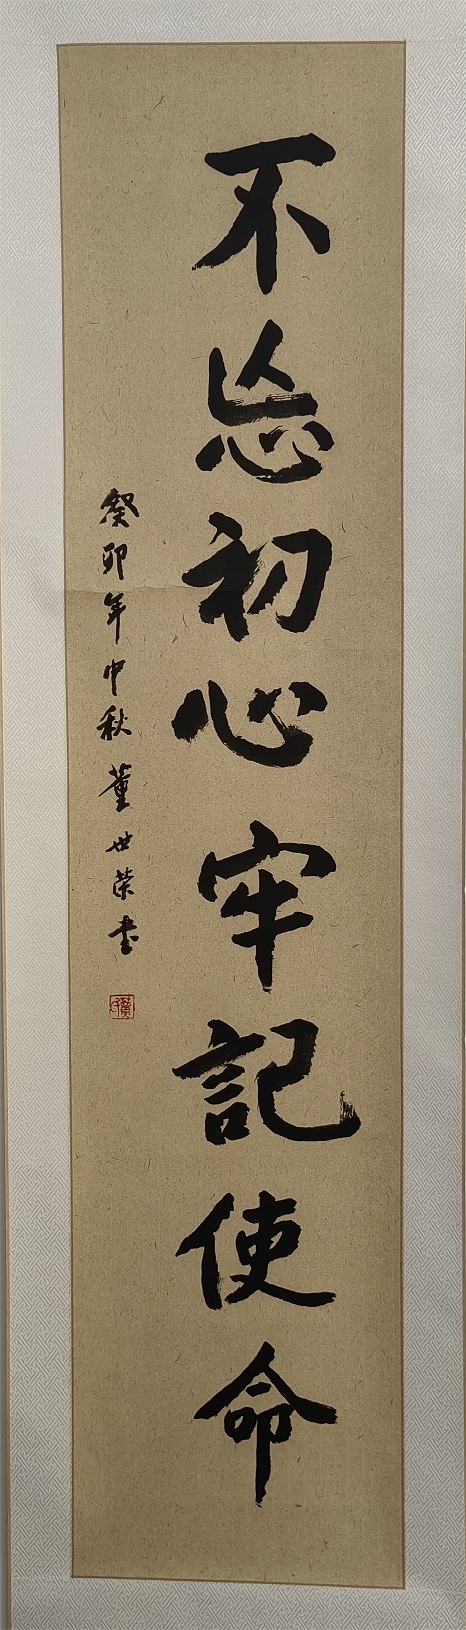 不忘初心牢記使命
癸卯年中秋董世荣书